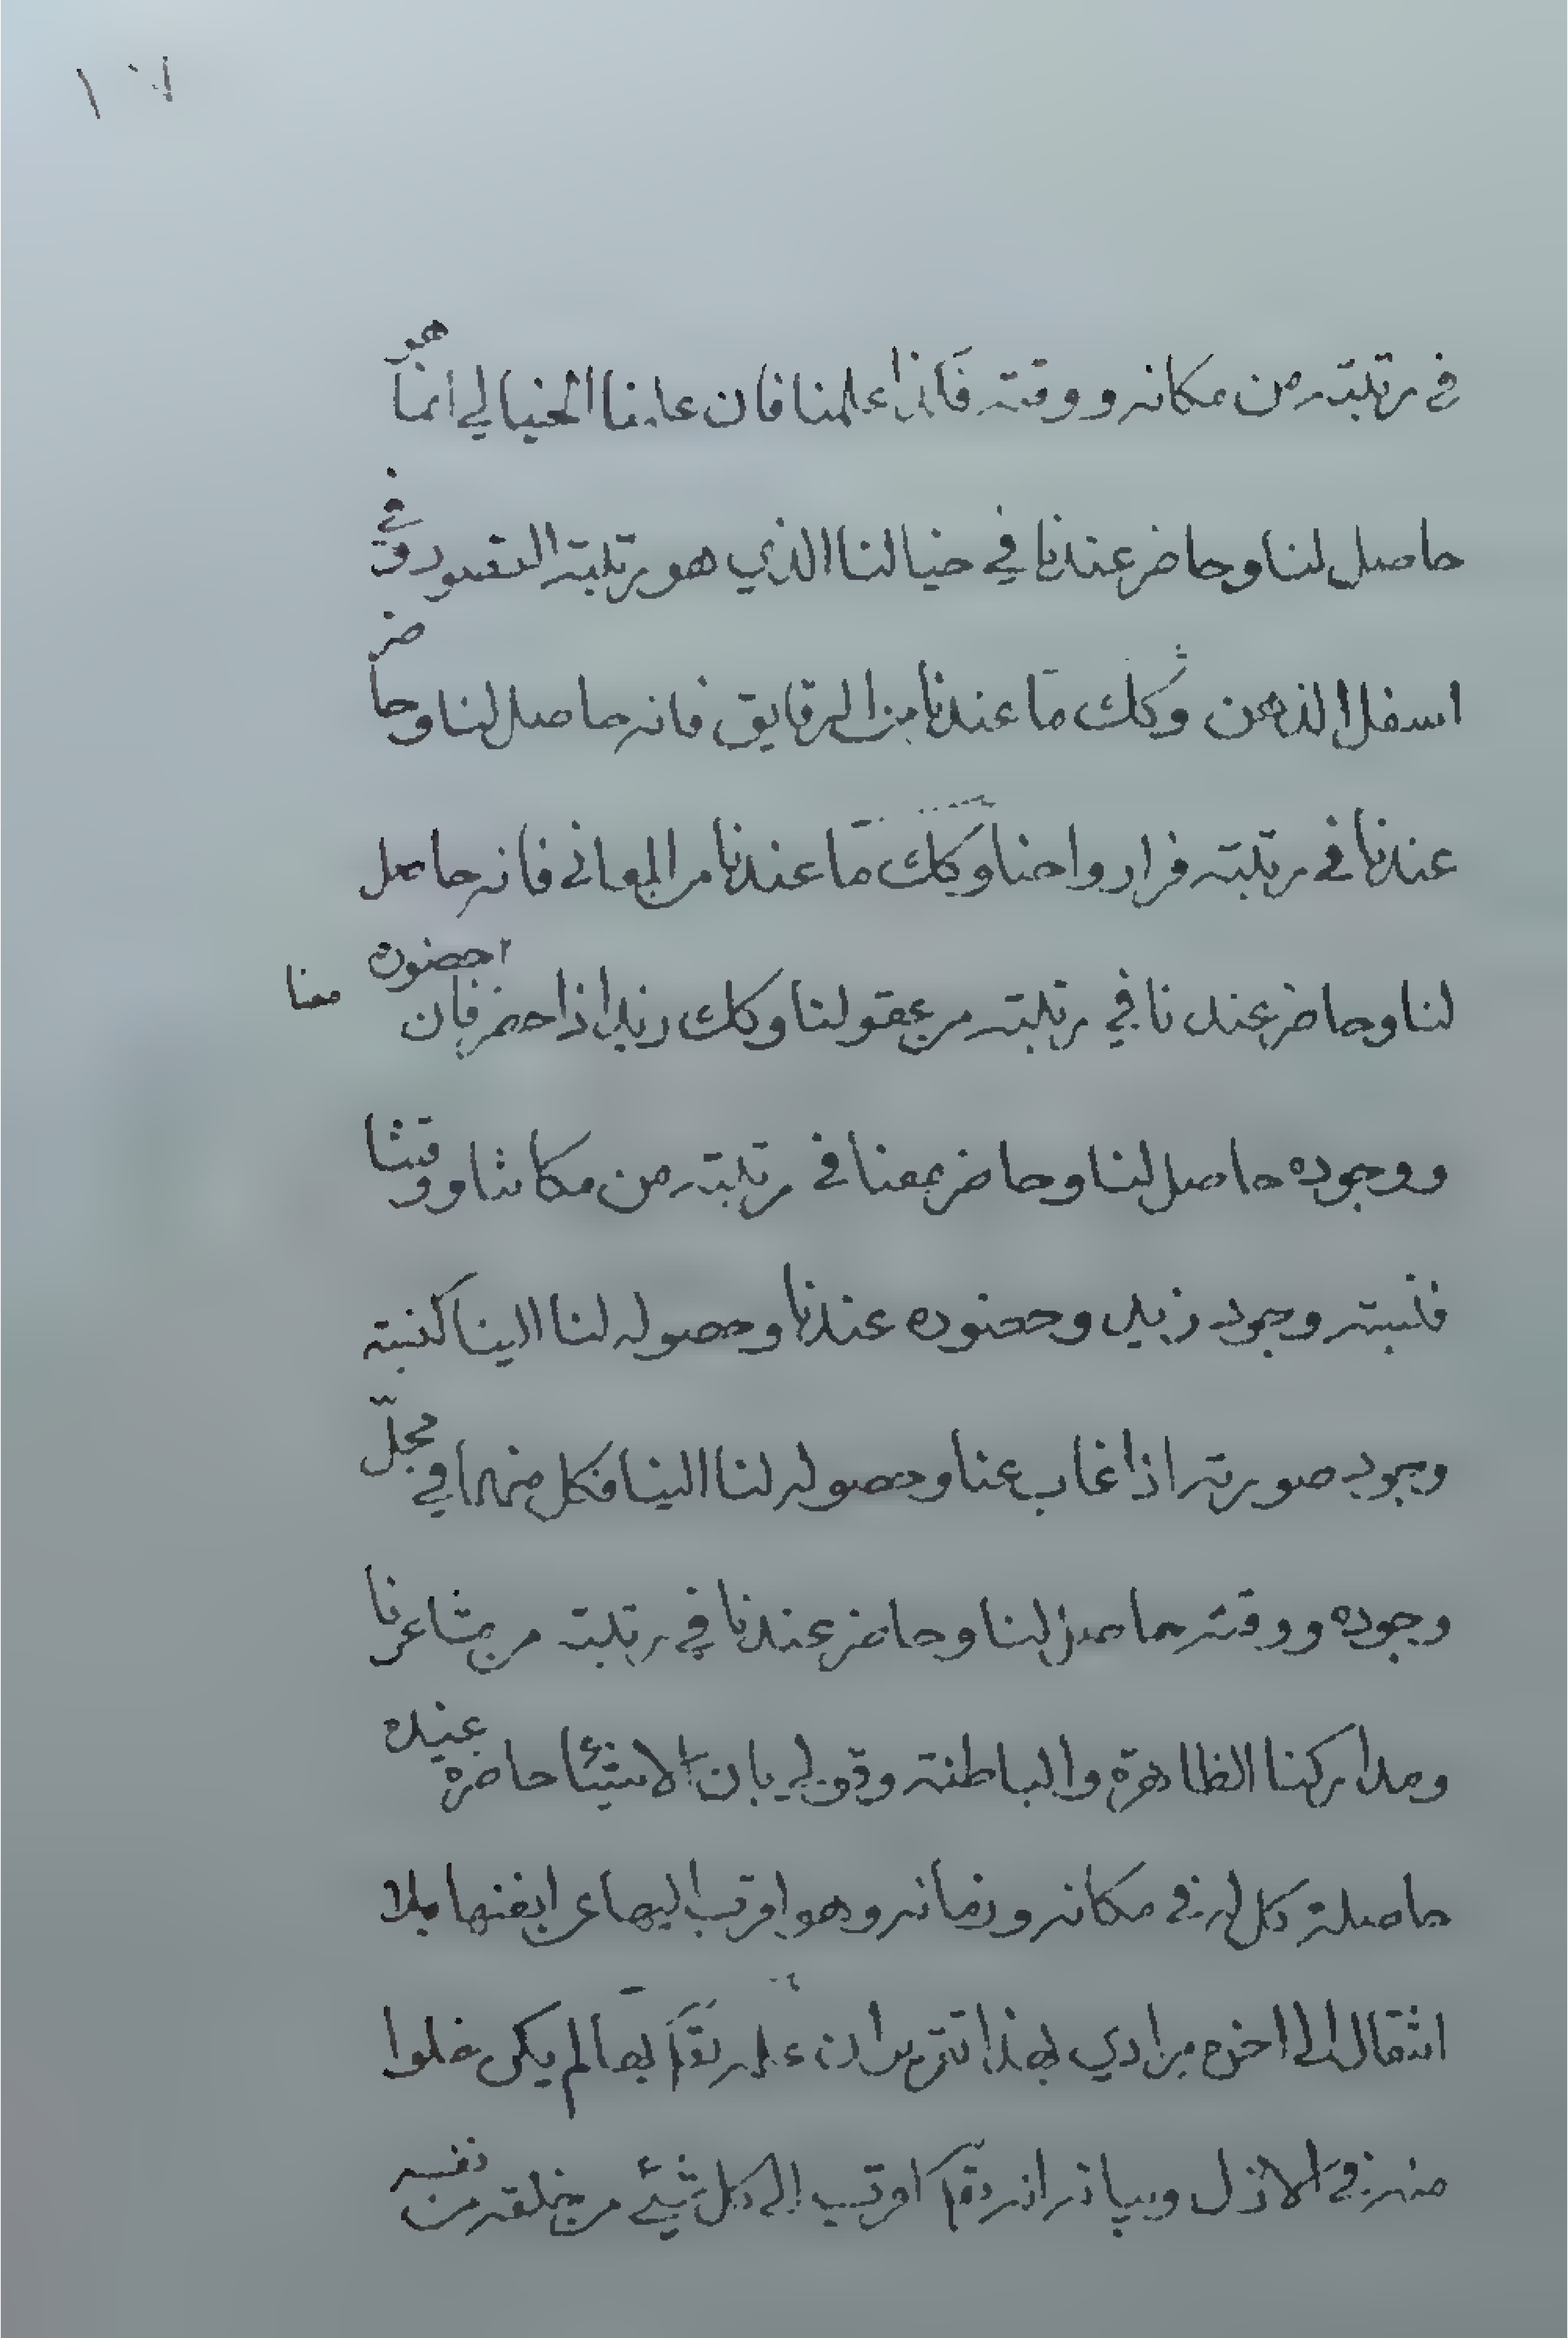 في رتبته من مكانه ووقته فاذا علمنا فان علمنا الخيالي انما هو
حاصل لنا وحاضر عندنا في خيالنا الذي هو رتبته الصور وفي
اسفل الذهن وكك ما عندنا من الرقايق فانه حاصل لنا وحاضر
عندنا في رتبته من ارواحنا وكك ما عندنا من المعاني فانه حاصل
لنا وحاضر عندنا في رتبته من عقولنا وكك زيد اذا حضر فان حضوره معنا
ووجوده حاصل لنا وحاضر معنا في رتبته من مكاننا ووقتنا
فنسبته وجود زيد وحضوره عندنا وحصوله لنا الينا كنسبته
وجود صورته اذا غاب عنا وحصوله لنا الينا فكل منهما في محل
وجوده ووقته حاصل لنا وحاضر عندنا في رتبته من مشاعرنا
ومداركنا الظاهرة والباطنة وقولي بان الاشيئا حاضرة عنده
حاصلة كل له في مكانه وزمانه وهو اقرب اليها من انفسها بلا
انتقال الى اخره مرادي بهذا ان علمه تقا بها لم يكن خلوا
منه في الازل وبيانه انه تقا اقرب الى كل شيئ من خلقه من نفسه